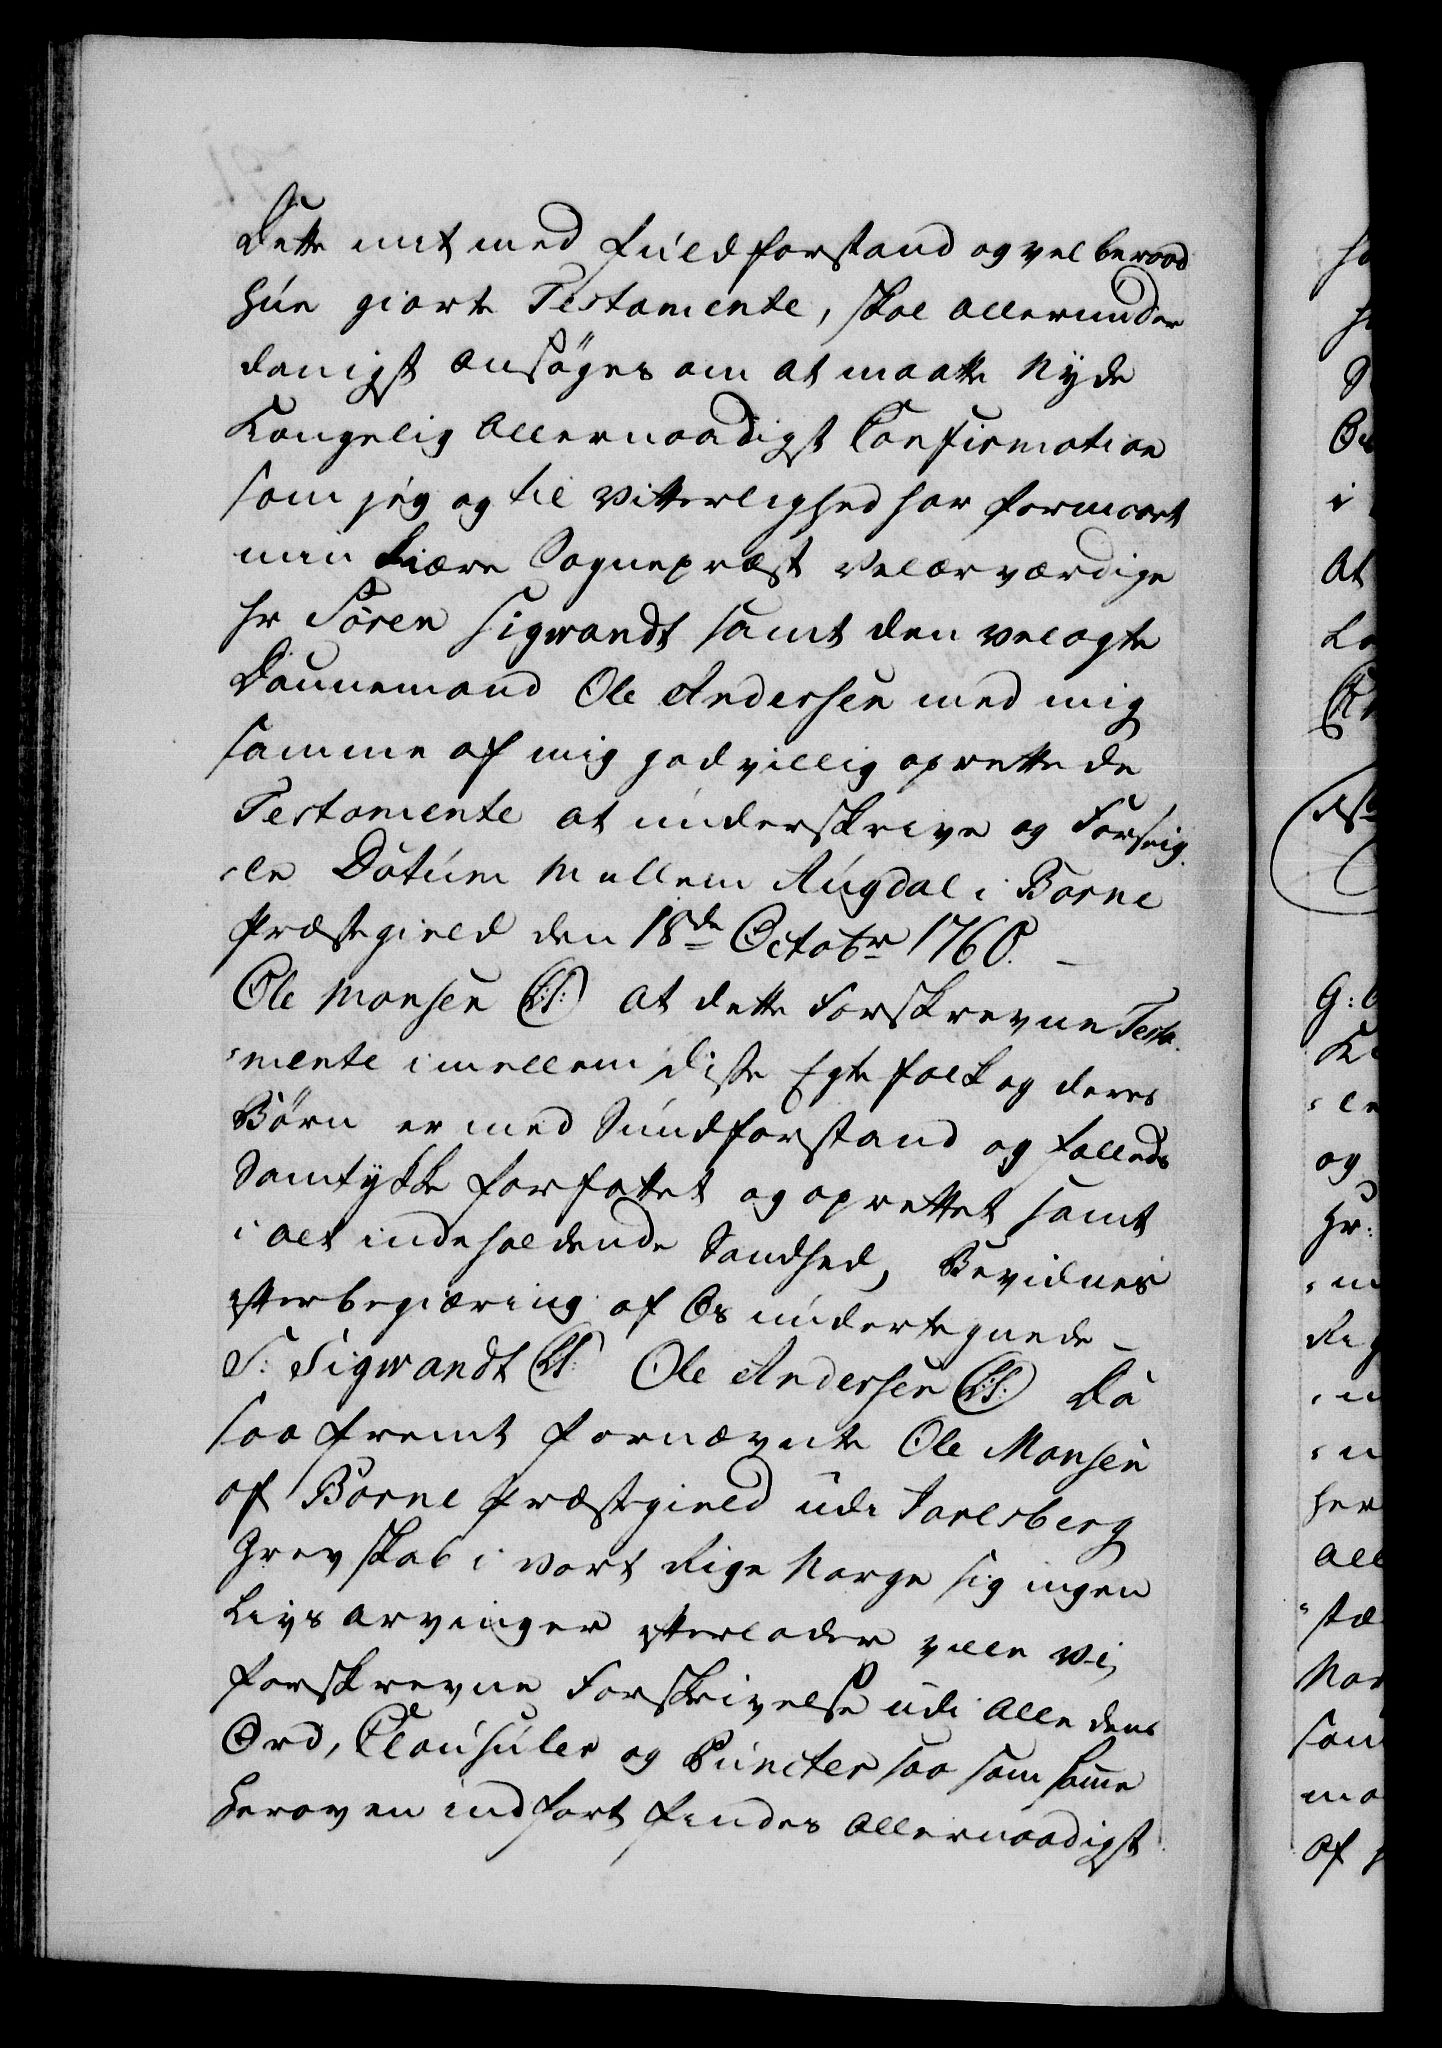 Dette mit med fuld forstand og vel beraad
hue giorte Testamente, skal allerunder
danigst ansøges om at maatte Nyde
Kongelig Allernaadigst Confirmation
som jeg og til Vitterlighed har formaaet
min kiære Sognepræst Velærværdige
Hr Søren Sigwandt samt den velagte
Dannemand Ole Andersen med mig
samme af mig godvillig oprettede
Testamente at underskrive og Forseig
-le Datum Mellem Augdal i Borne
Præstegield den 18de Octobr 1760. –
Ole Monsen (L:S:) At dette Forskrevne Testa
-mente imellem disse Egtefolk og deres
Børn er med Sund forstand og fælleds
Samtykke forfattet og oprettet samt
i alt indeholdende Sandhed, Bevidnes
efter begiæring af Os undertegnede –
S: Sigwandt (L:S:) Ole Andersen (L:S:) Da
saa fremt fornævnte Ole Monsen
af Borne Præstegield udi Jarlsberg
Grevskab i vort Rige Norge sig ingen
Livs arvinger efterlader ville vi,
forskrevne Forskrivelse udi Alle dens
Ord, Clausuler og Puncter saa som samme
heroven indført findes Allernaadigst